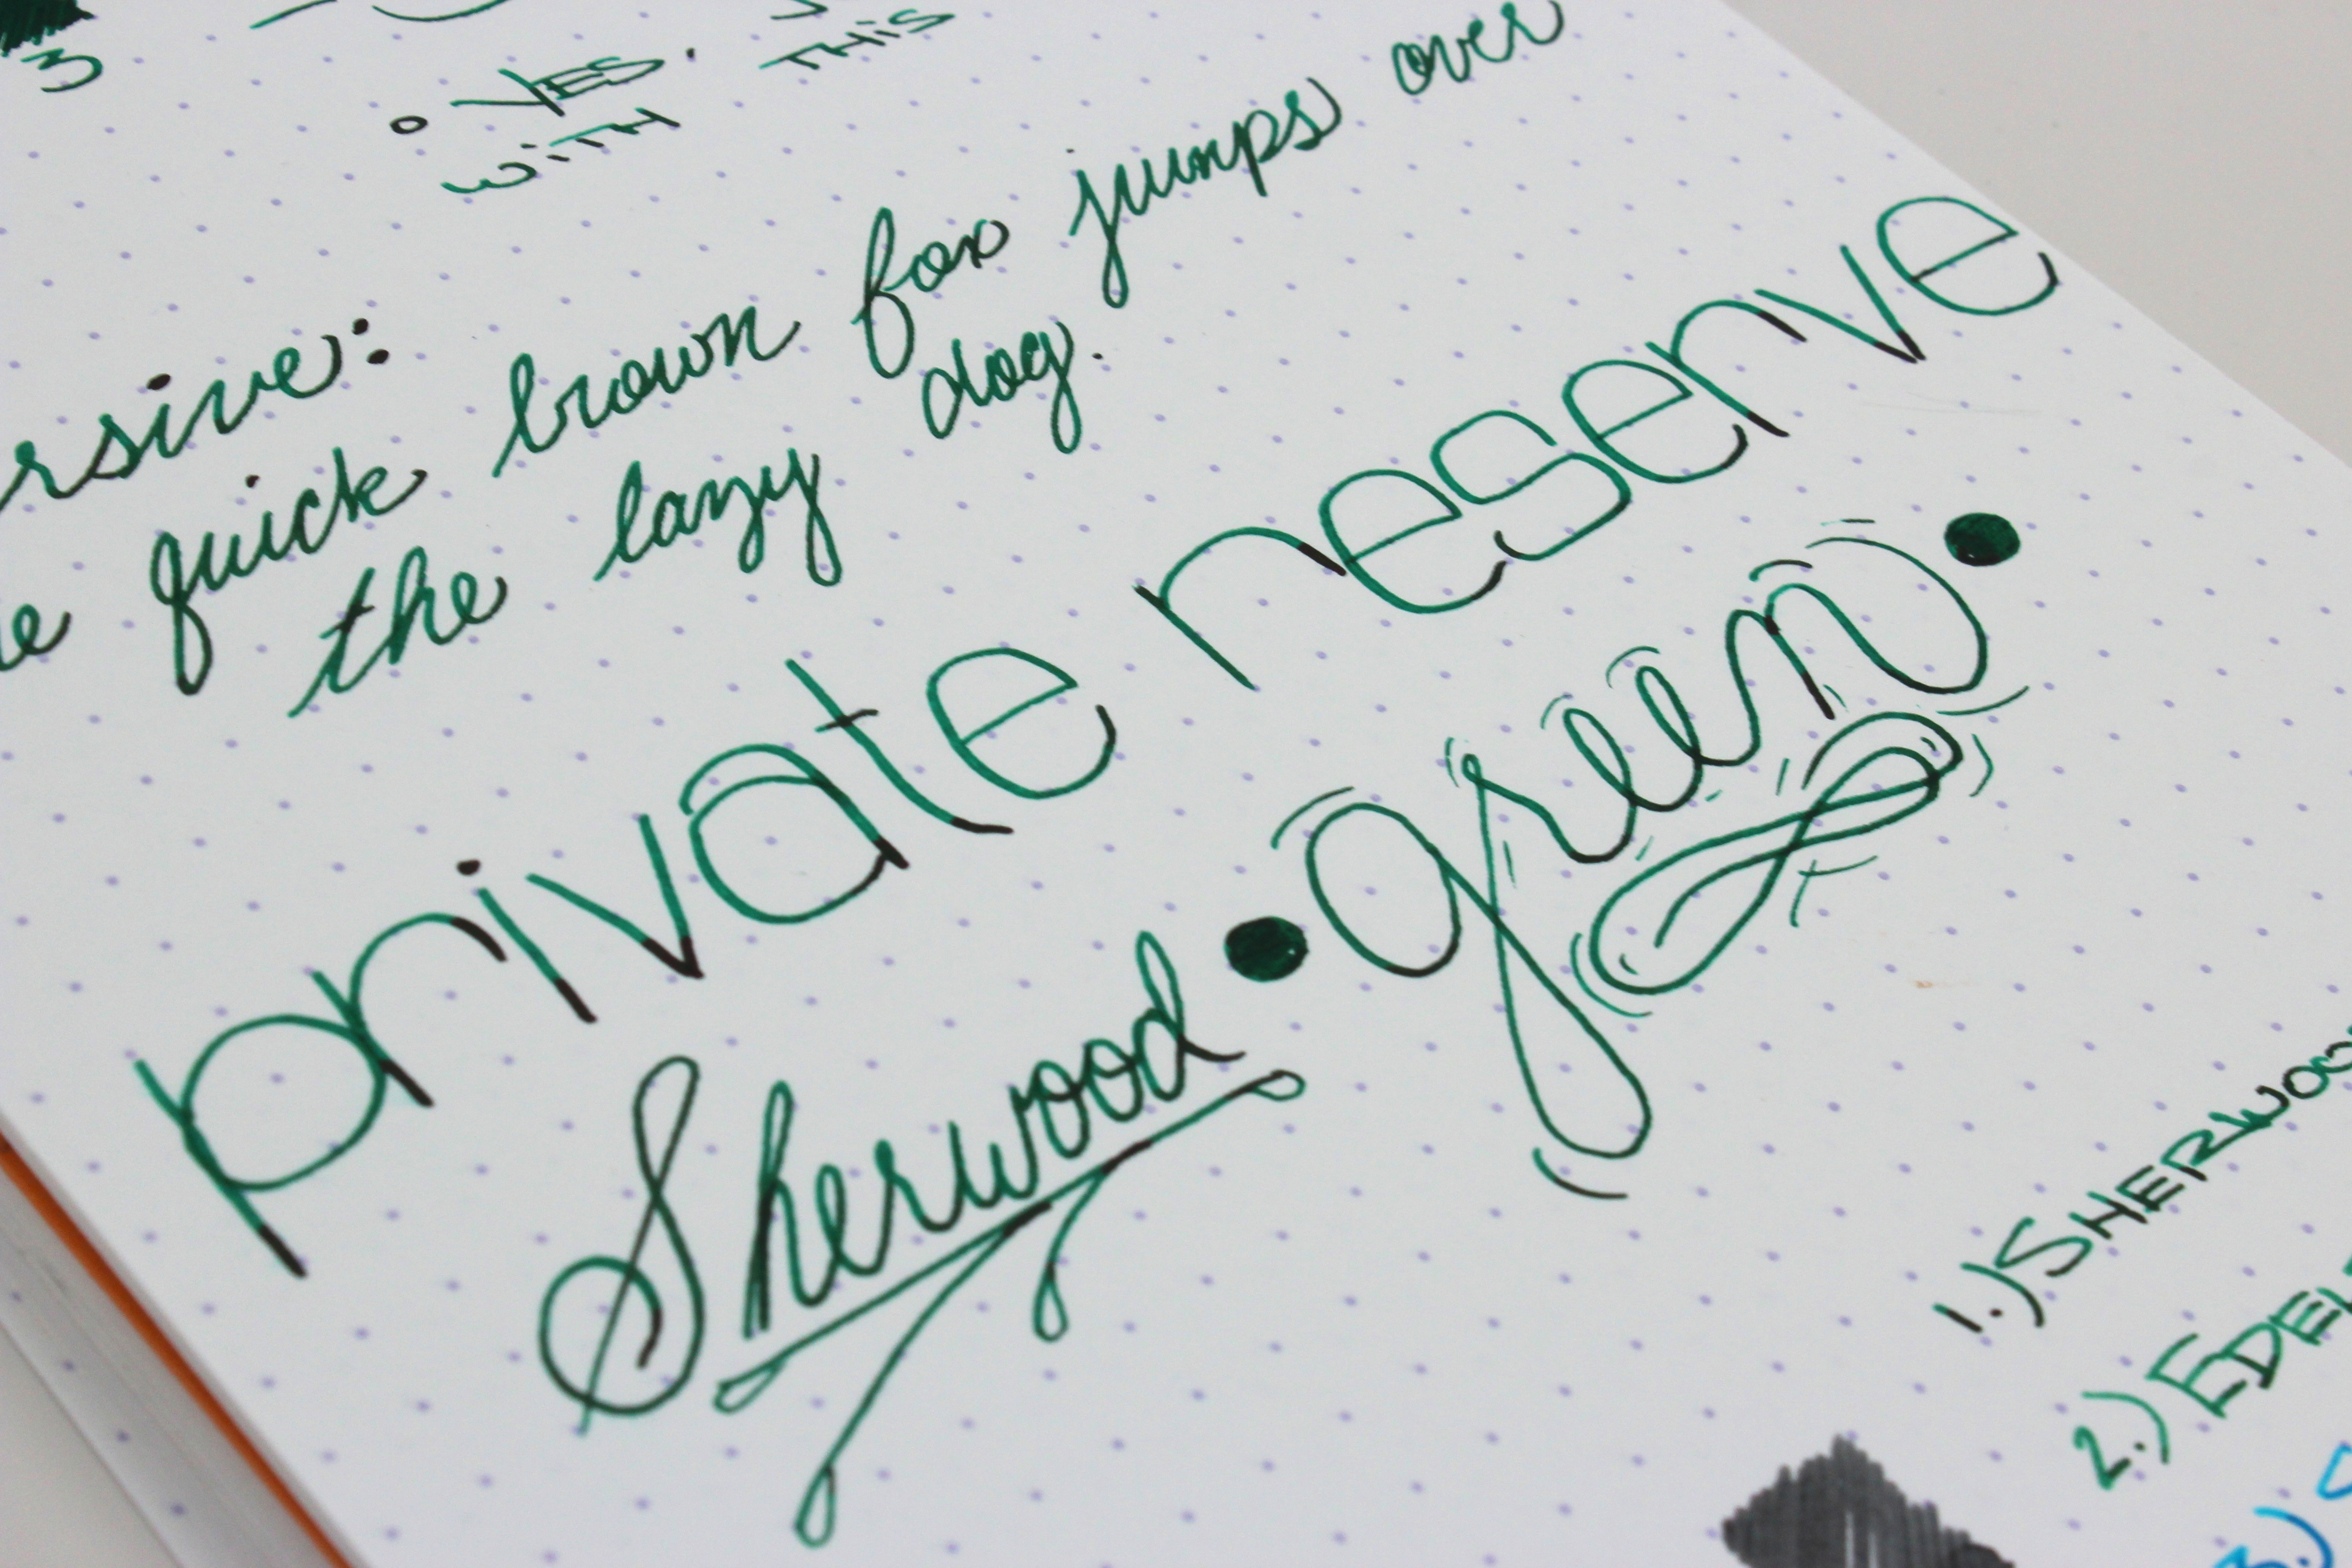 3
• YES. THIS
WITH
rsive:
e quick brown fox jumps over
the lazy dog.
private reserve
Sherwood • green •
1.) SHERWOO
2.) EDEL
3.)